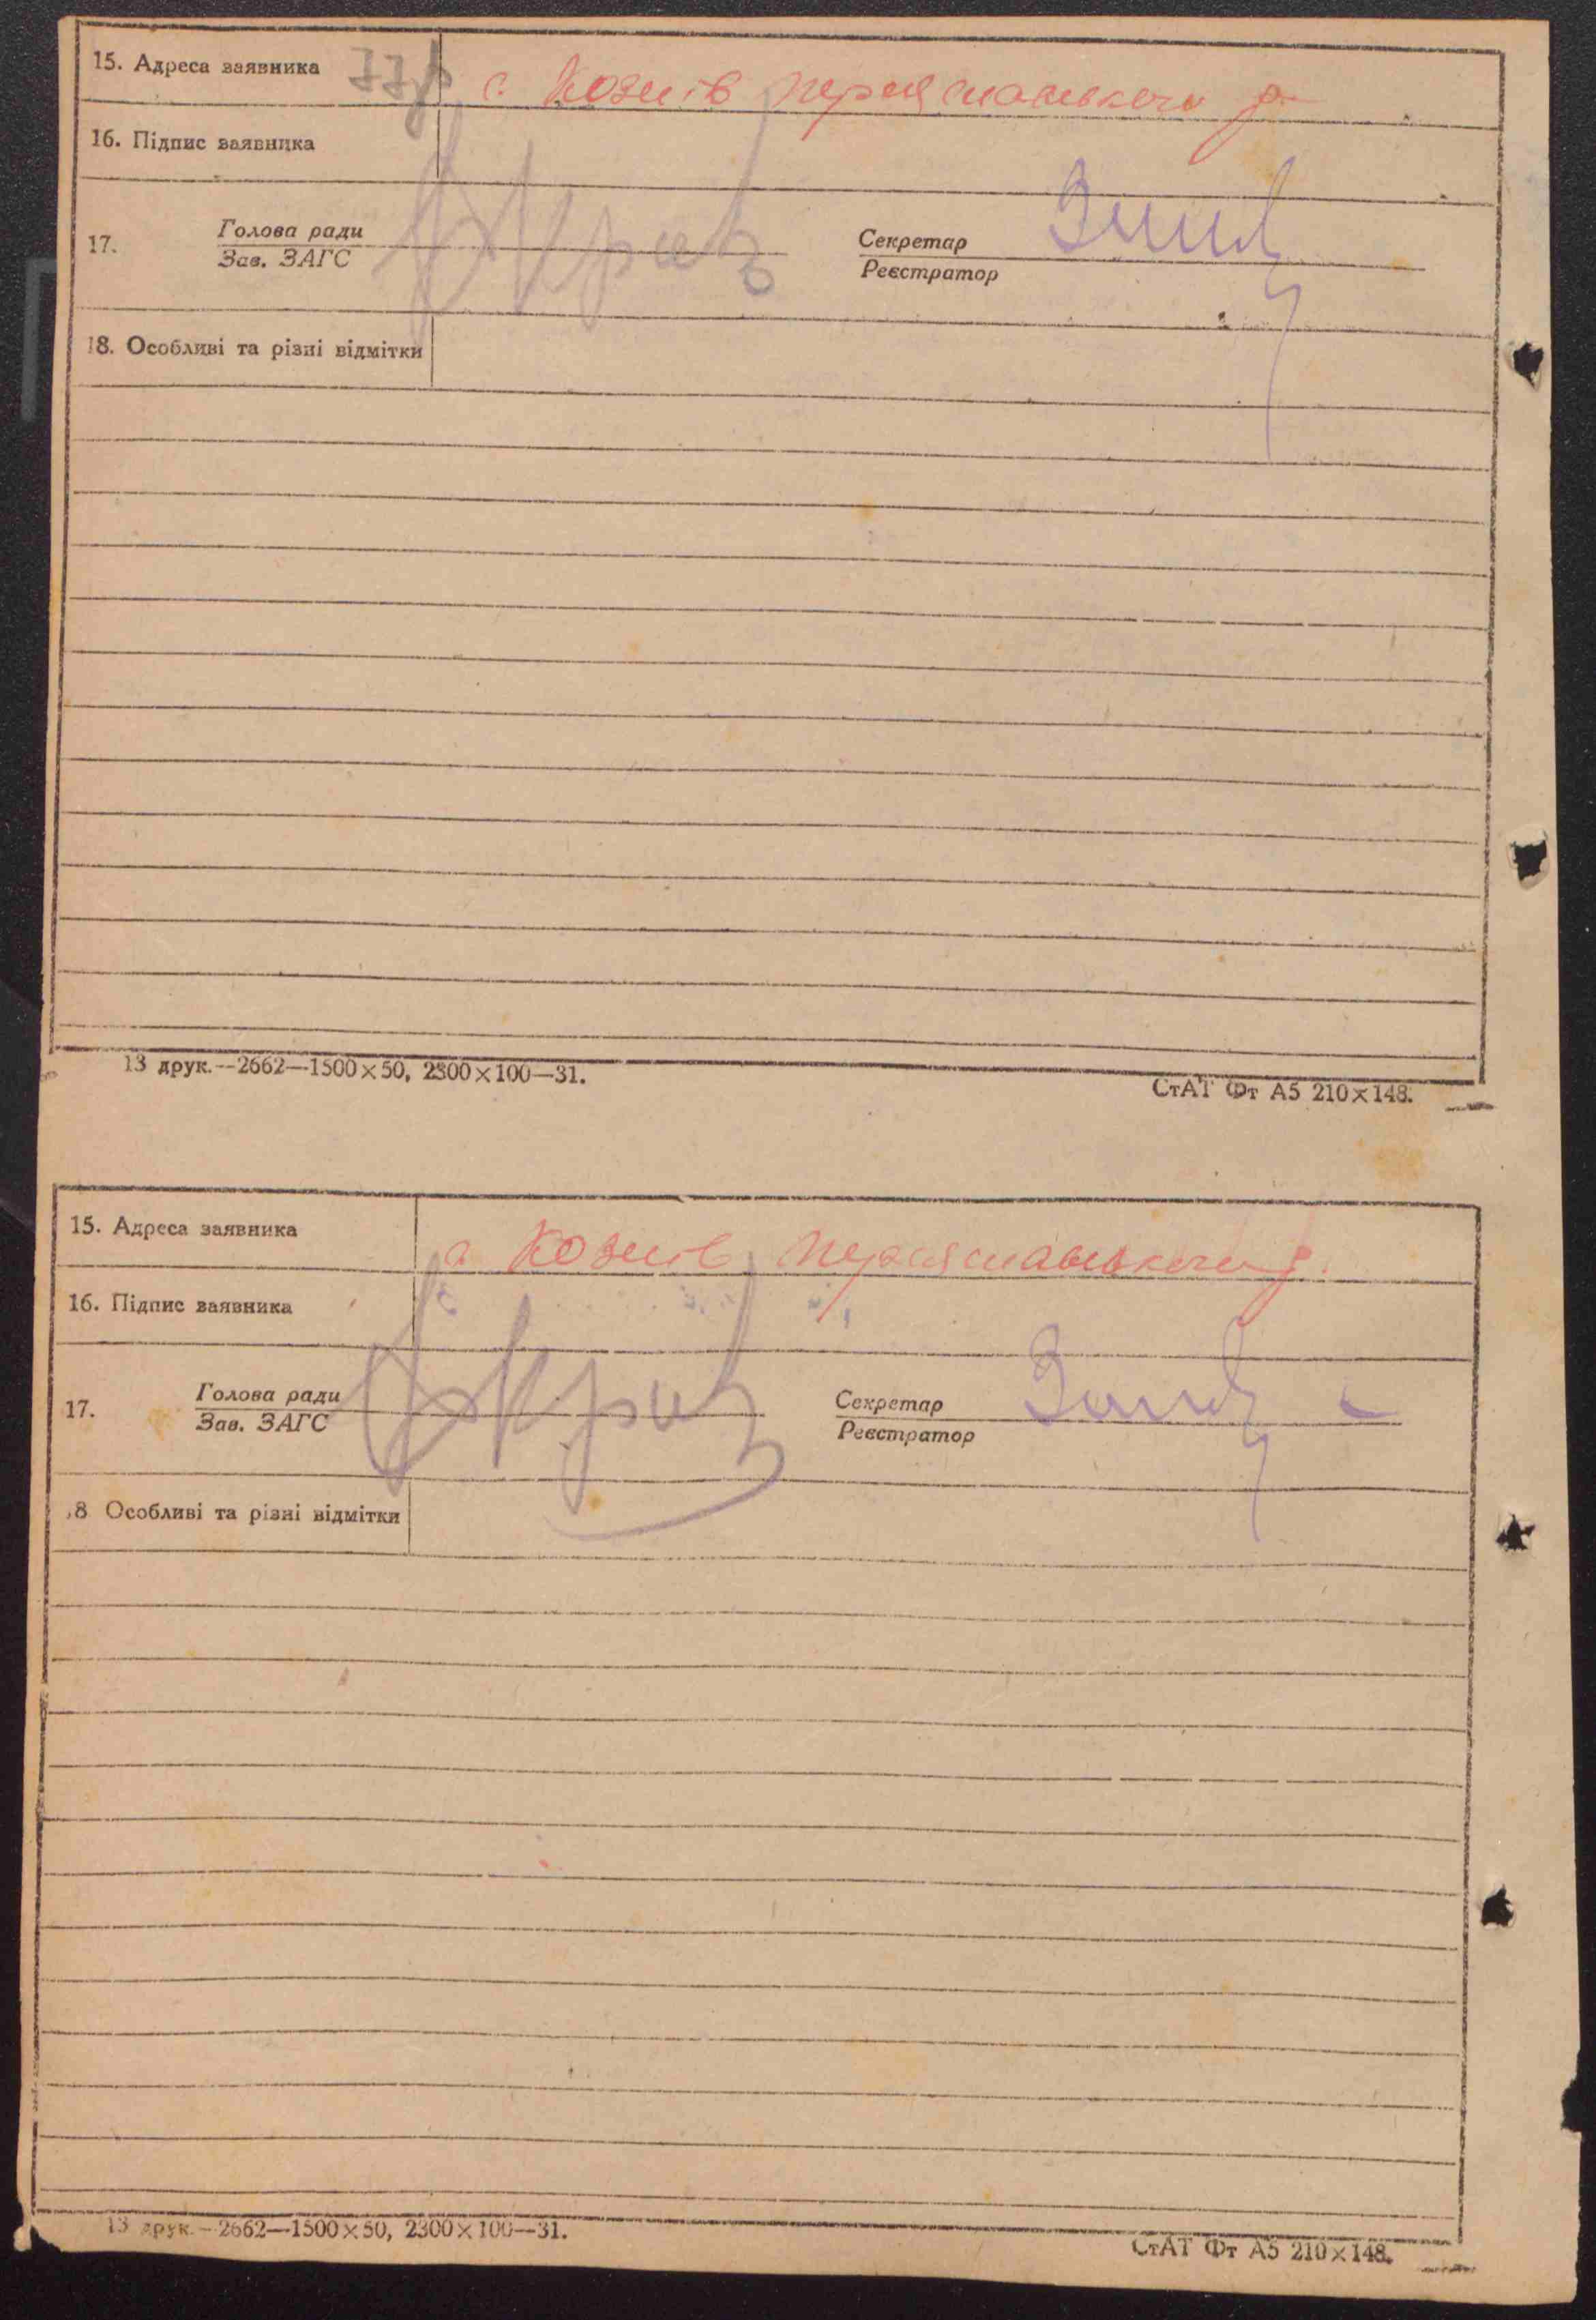 15. Адреса заявника 77зв с. Козлів Переяславського р.
16. Підпис заявника
17. Голова ради Секретар
Зав. ЗАГС Реєстратор
18. Особливі та різні відмітки
13 друк.—2662—1500×50, 2300×100—31.
СтАТ Фт А5 210×148.
15. Адреса заявника с. Козлів Переяславського р.
16. Підпис заявника
17. Голова ради Секретар
Зав. ЗАГС Реєстратор
18 Особливі та різні відмітки
13 друк.—2662—1500×50, 2300×100—31.
СтАТ Фт А5 210×148.